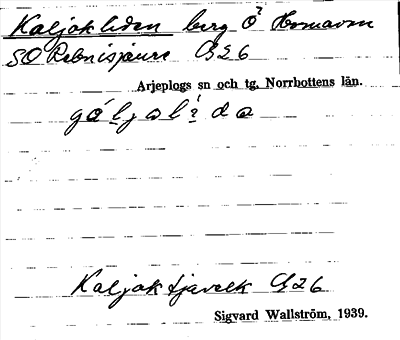 Kaljokliden berg Ö? Hornavan
SO Rebnisjaure G26
Arjeplogs sn och tg, Norrbottens län.
Kaljoktjavelk G26
Sigvard Wallström, 1939.